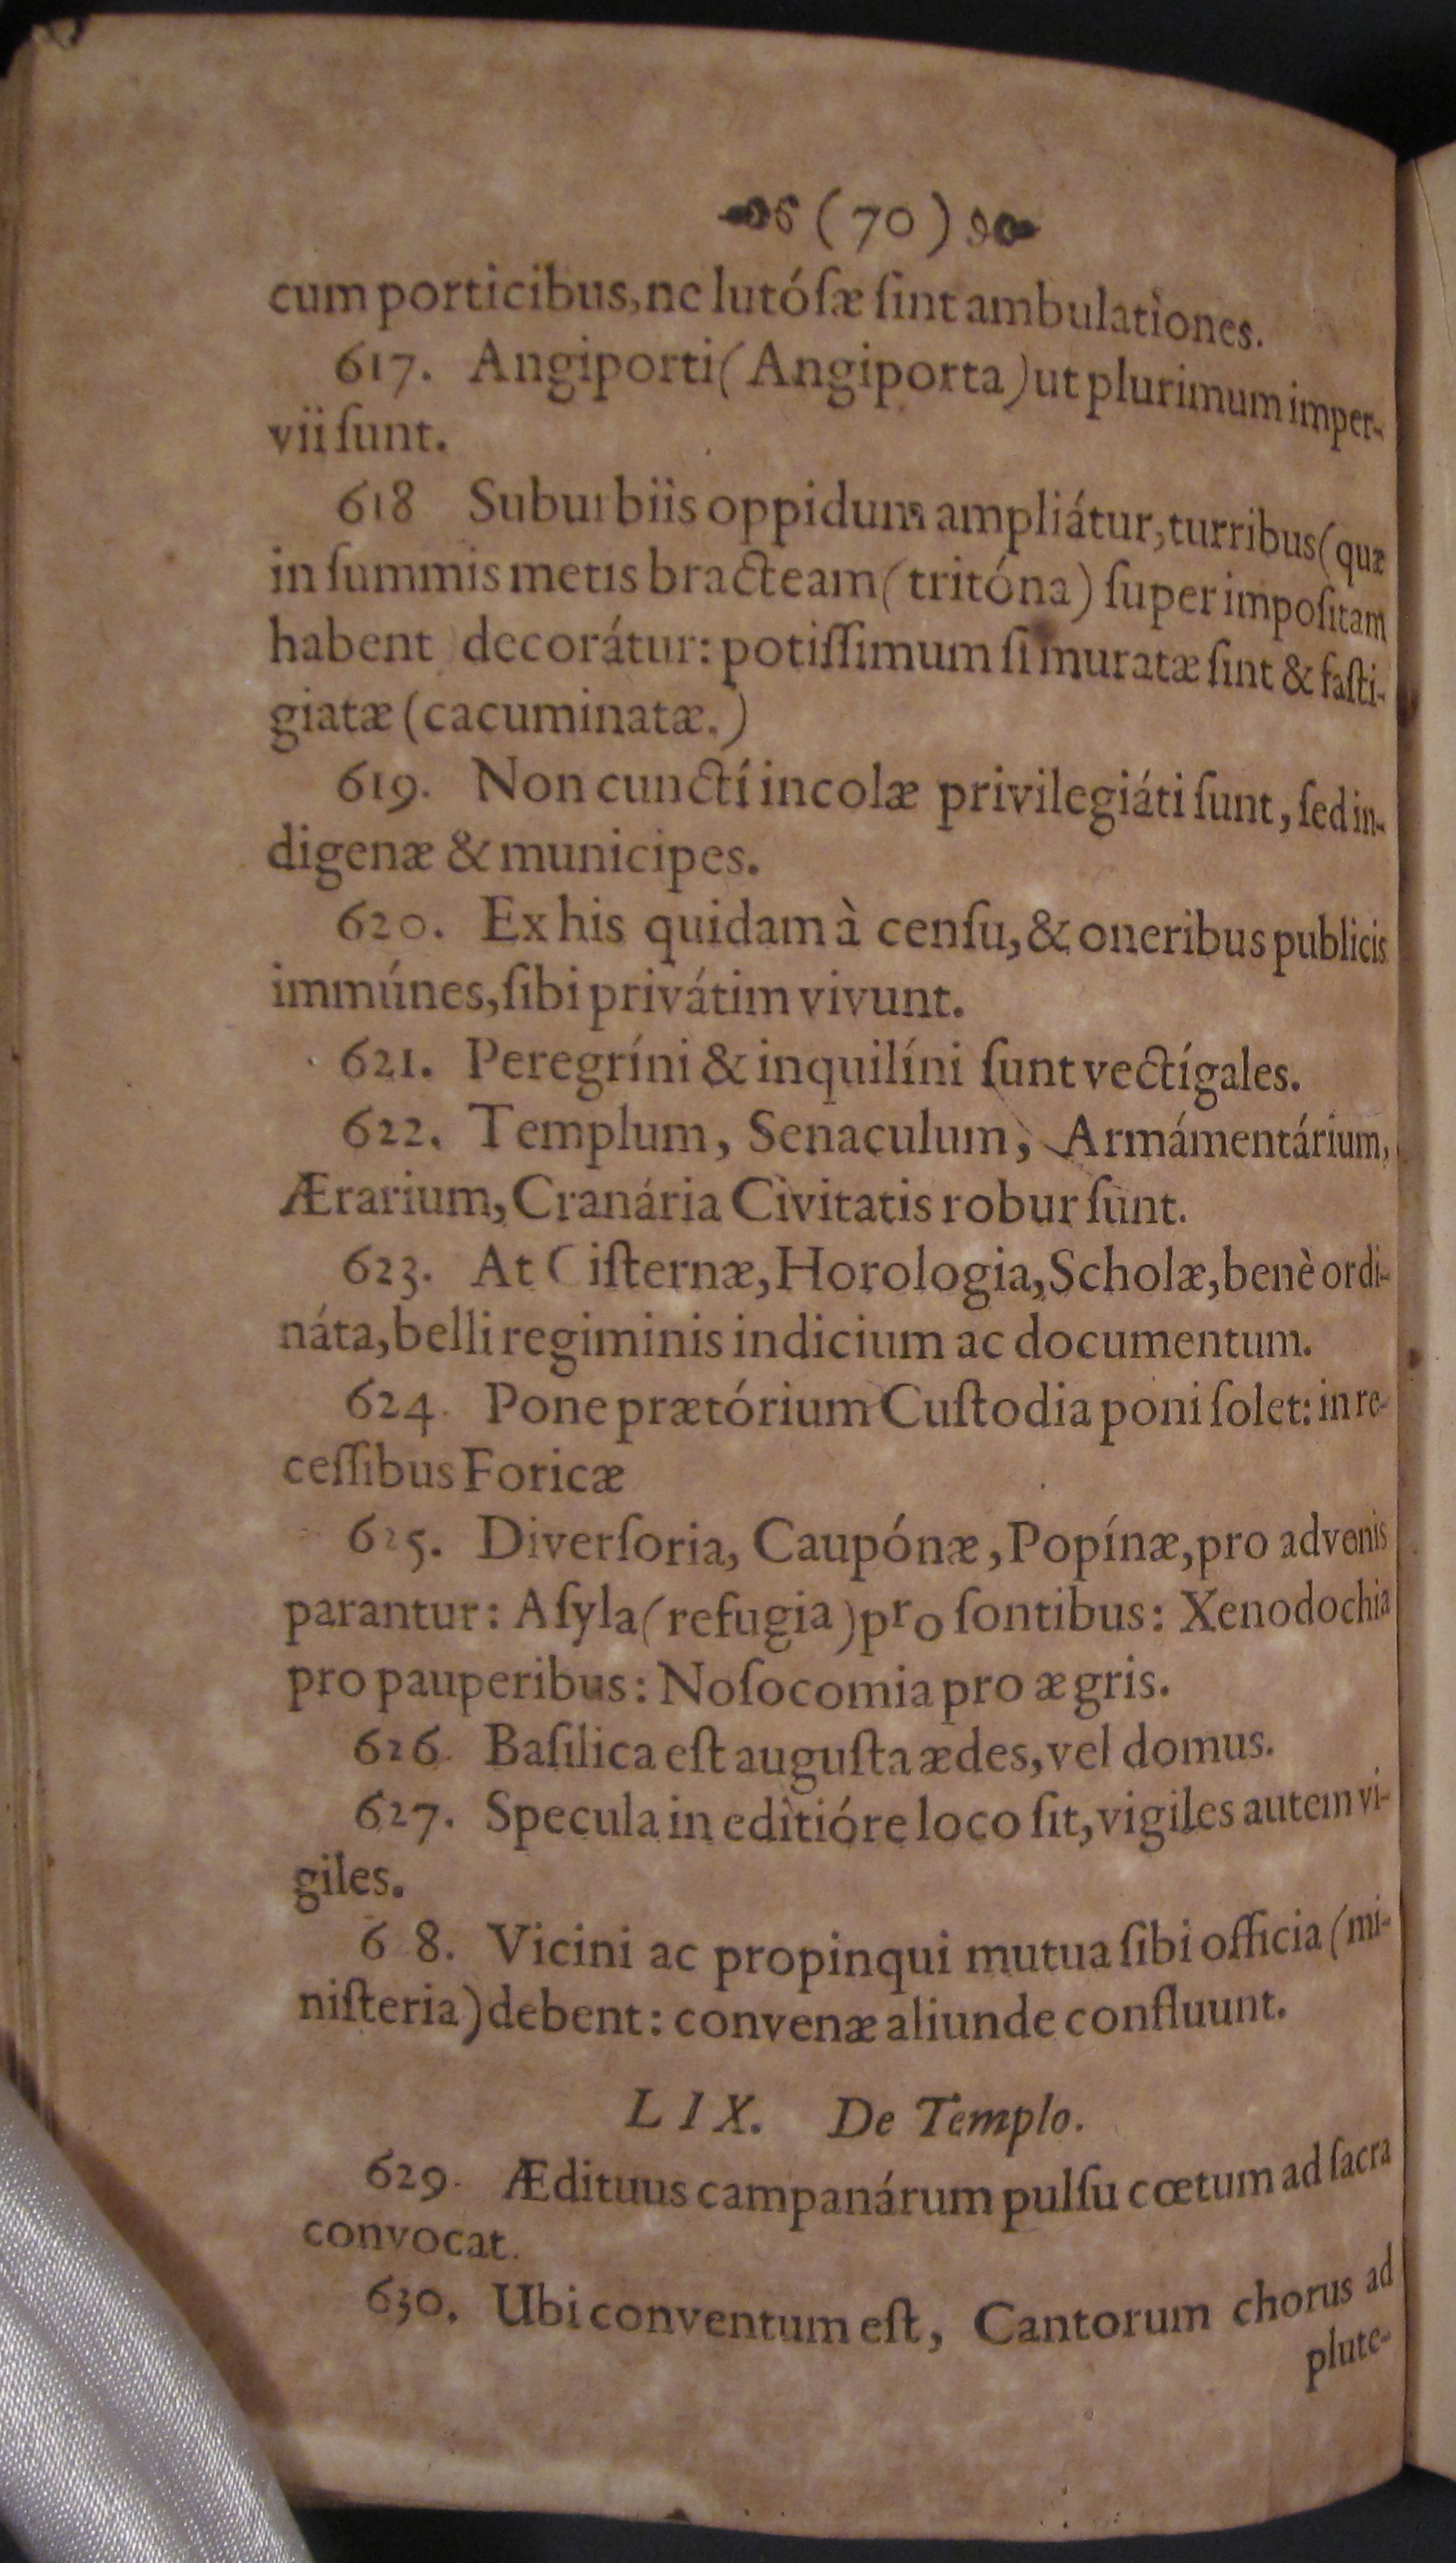 (70)
cum porticibus, ne lutóſæ ſint ambulationes.
617. Angiporti (Angiporta) ut plurimum imper-
vii ſunt.
618 Suburbiis oppidum ampliátur, turribus (quæ
in ſummis metis bracteam (tritóna) ſuperimpoſitam
habent decorátur: potiſſimum ſi muratæ ſint & faſti-
giatæ (cacuminatæ.)
619. Non cuncti incolæ privilegiáti ſunt, ſed in-
digenæ & municipes.
620. Ex his quidam à cenſu, & oneribus publicis
immúnes, ſibi privátim vivunt.
621. Peregríni & inquilíni ſunt vectígales.
622. Templum, Senaculum, Armámentárium,
Ærarium, Cranária Civitatis robur ſunt.
623. At Ciſternæ, Horologia, Scholæ, benè ordi-
náta, belli regiminis indicium ac documentum.
624. Pone prætórium Cuſtodia poni ſolet: in re-
ceſſibus Foricæ
625. Diverſoria, Caupónæ, Popínæ, pro advenis
parantur: Aſyla (refugia) pro ſontibus: Xenodochia
pro pauperibus: Noſocomia pro ægris.
626. Baſilica eſt auguſta ædes, vel domus.
627. Specula in editióre loco ſit, vigiles autem vi-
giles.
6 8. Vicini ac propinqui mutua ſibi officia (mi-
niſteria) debent: convenæ aliunde confluunt.
LIX. De Templo.
629. Ædituus campanárum pulſu cœtum ad ſacra
convocat.
630. Ubi conventum eſt, Cantorum chorus ad
plute-